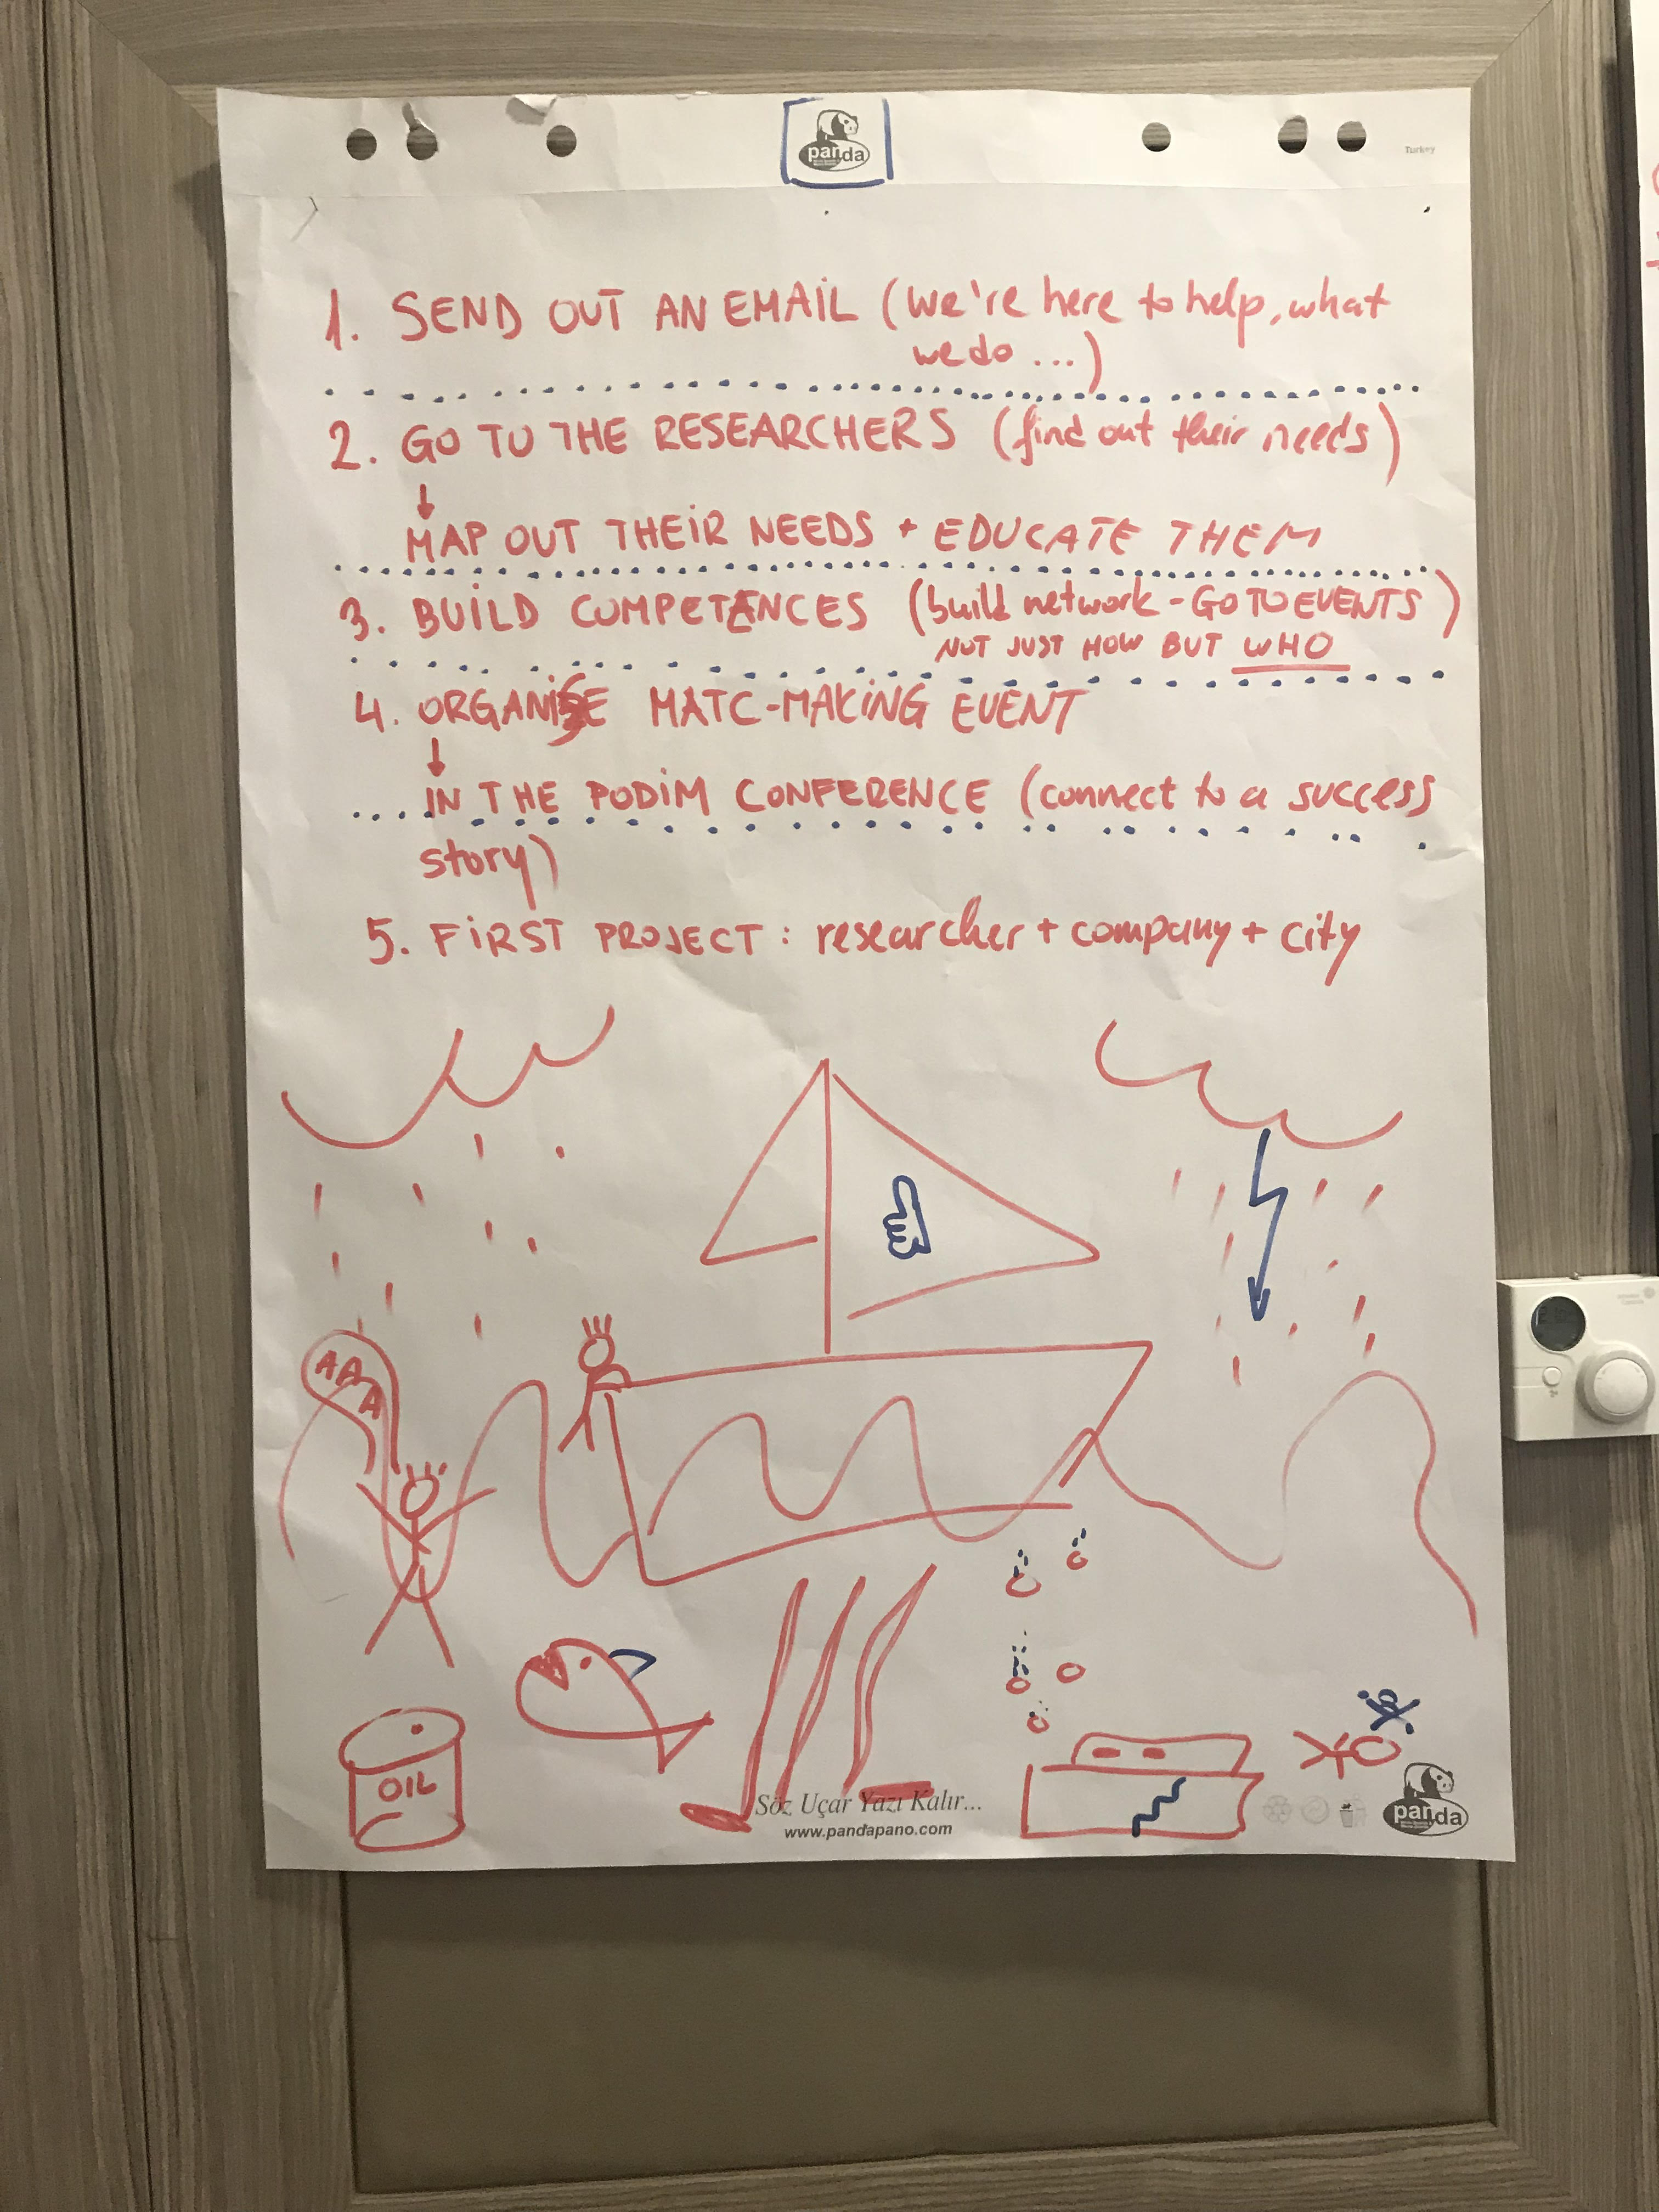 panda
Turkey
1. SEND OUT AN EMAIL (we're here to help, what
we do ...)
2. GO TO THE RESEARCHERS (find out their needs)
MAP OUT THEIR NEEDS + EDUCATE THEM
3. BUILD COMPETENCES (build network - GO TO EVENTS)
NOT JUST HOW BUT WHO
4. ORGANISE MATC-MAKING EVENT
IN THE PODIM CONFERENCE (connect to a success
story)
5. FIRST PROJECT: researcher + company + city
AAA
OIL
Söz Uçar Yazı Kalır...
www.pandapano.com
panda